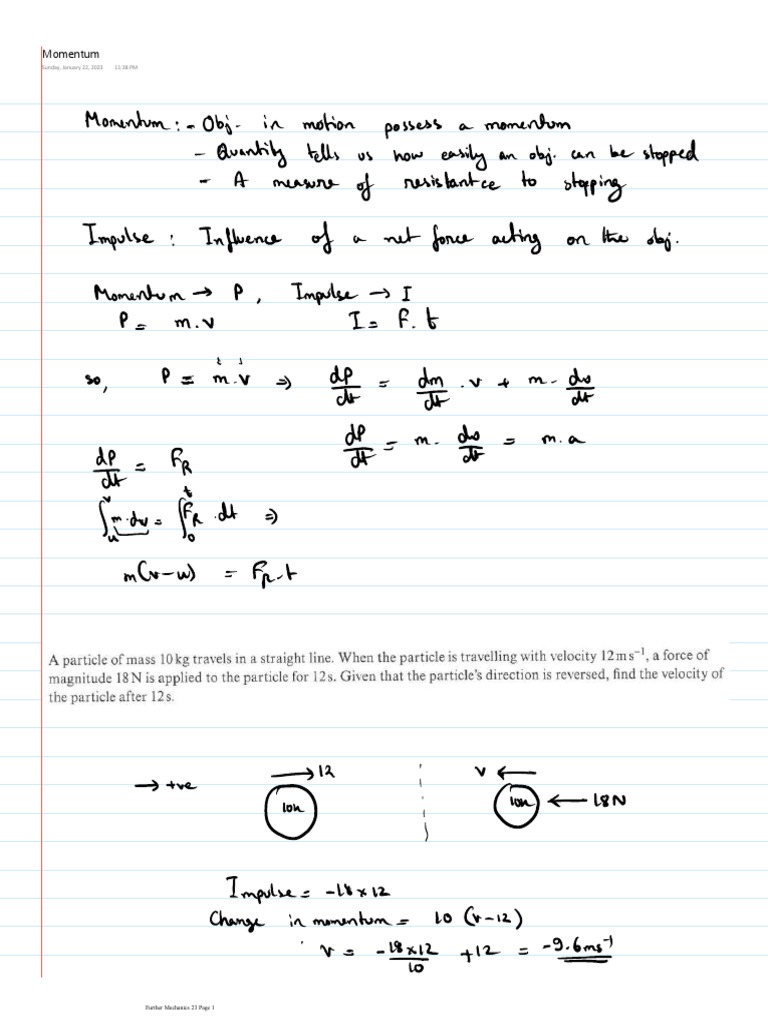 Momentum
Sunday, January 22, 2023 11:38 PM
Momentum : - Obj. in motion possess a momentum
- Quantity tells us how easily an obj. can be stopped
- A measure of resistantce to stopping
Impulse : Influence of a net force acting on the obj.
Momentum → P , Impulse → I
P = m.v I = F.t
so, P = m.v ⇒ dP/dt = dm/dt . v + m. dv/dt
dP/dt = m. dv/dt = m.a
dP/dt = F_R
∫_u^v m.dv = ∫_0^t F_R .dt ⇒
m(v-u) = F_R.t
A particle of mass 10 kg travels in a straight line. When the particle is travelling with velocity 12 m s⁻¹, a force of
magnitude 18 N is applied to the particle for 12 s. Given that the particle's direction is reversed, find the velocity of
the particle after 12 s.
→ +ve → 12 v ←
10k 10k ← 18N
Impulse = -18 x 12
Change in momentum = 10 (v-12)
v = -18x12/10 +12 = -9.6ms⁻¹
Further Mechanics 23 Page 1